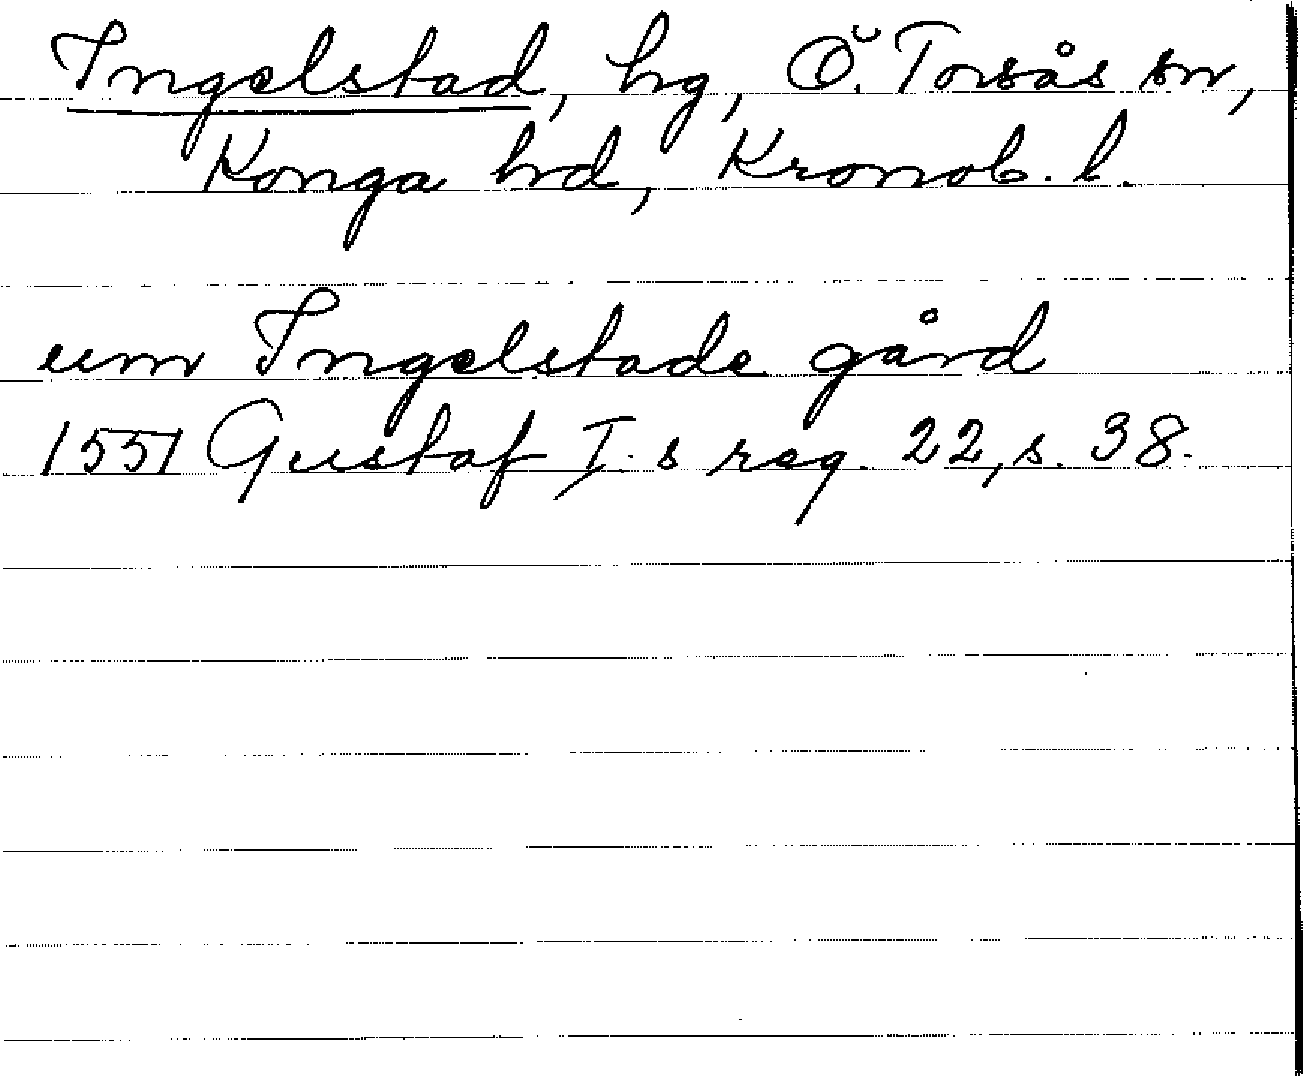 Ingelstad, hg, Ö. Torsås sn,
Konga hd, Kronob. l.
um Ingelstade gård
1551 Gustaf I.s reg. 22, s. 38.